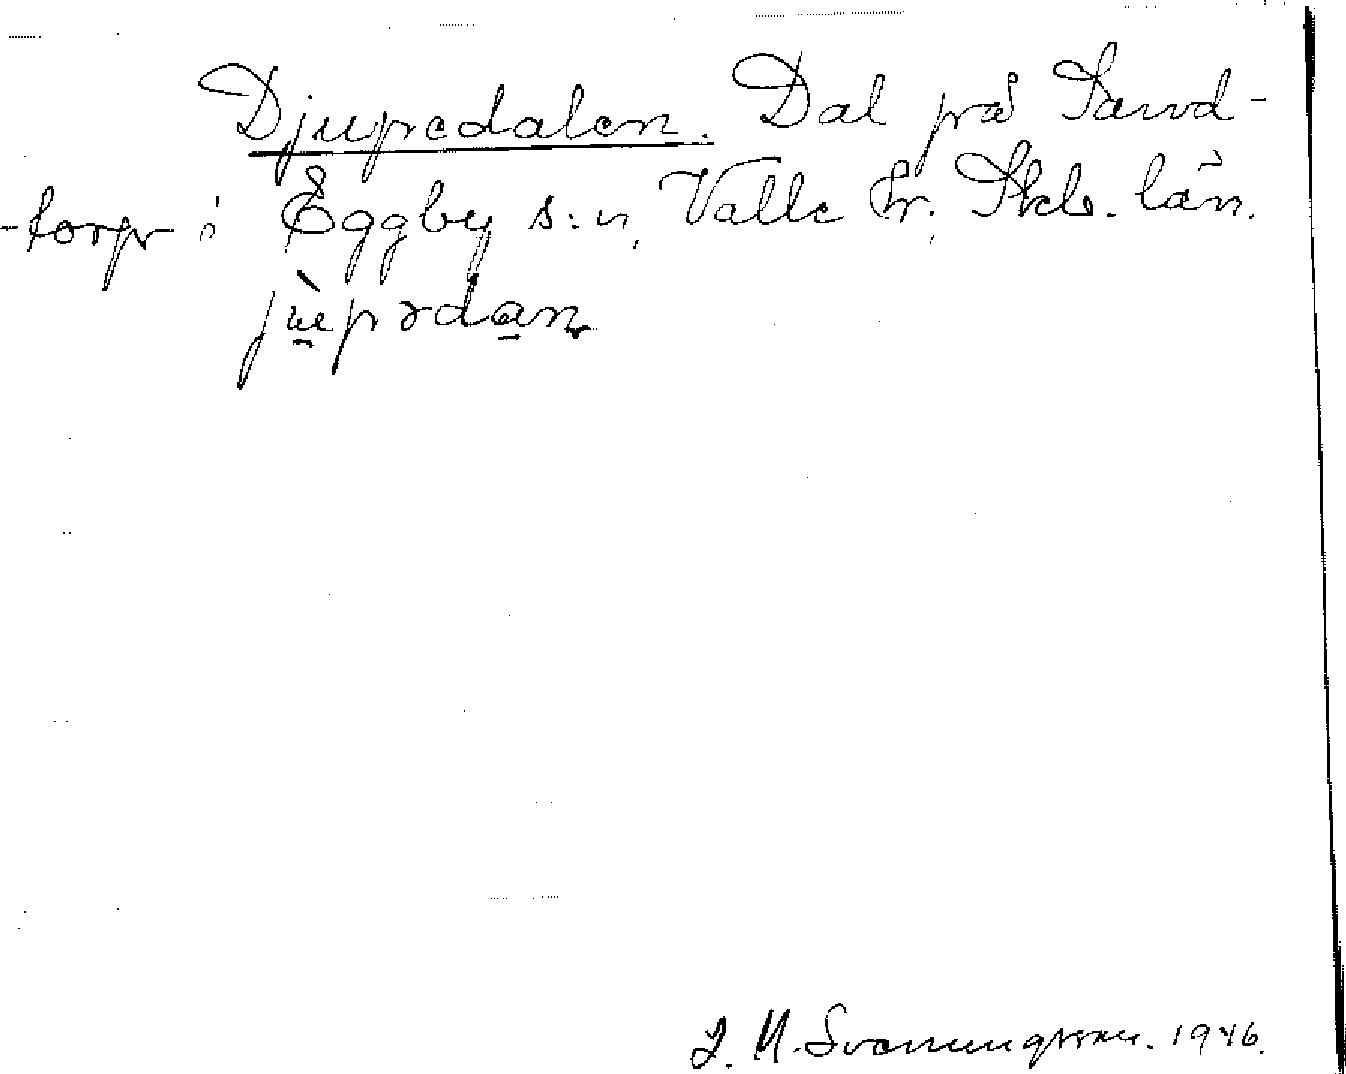 Djupedalen. Dal på Sand-
-torp i Eggby s:n, Valle hr, Skb. län.
jùpədan
J. M. Svenungsson. 1946.